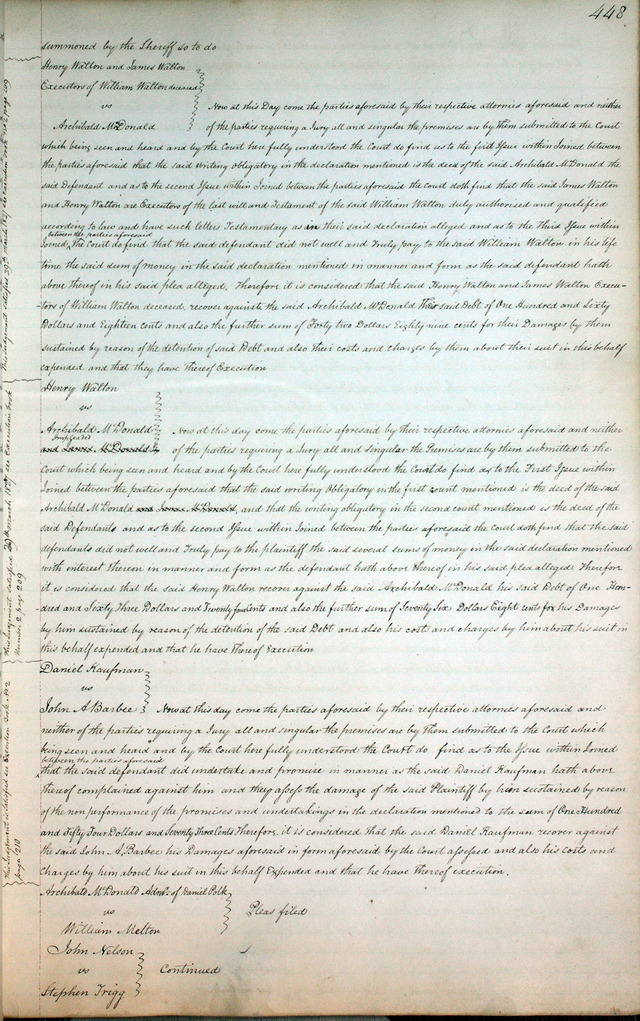 448
summoned by the Sheriff so to do
Henry Walton and James Walton
Executors of William Walton deceased
vs
Archibald McDonald
Now at this Day come the parties aforesaid by their respective attornies aforesaid and neither
of the parties requiring a Jury all and singular the premises are by them submitted to the Court
which being seen and heard and by the Court here fully understood the Court do find as to the first Issue within Joined between
the parties aforesaid that the said writing obligatory in the declaration mentioned is the deed of the said Archibald McDonald the
said Defendant and as to the second Issue within Joined between the parties aforesaid the court doth find that the said James Walton
and Henry Walton are Executors of the last will and Testament of the said William Walton duly authorised and qualified
according to law and have such letters Testamentary as in their said declaration alleged and as to the Third Issue within
between the parties aforesaid
Joined, the Court do find that the said defendant did not well and truly pay to the said William Walton in his life
time the said sum of money in the said declaration mentioned in manner and form as the said defendant hath
above thereof in his said plea alleged. Therefore it is considered that the said Henry Walton and James Walton Execu-
tors of William Walton deceased, recover against the said Archibald McDonald this said Debt of One Hundred and Sixty
Dollars and Eighteen cents and also the further sum of Forty two Dollars Eighty nine cents for their Damages by them
sustained by reason of the detention of said Debt and also their costs and charges by them about their suit in this behalf
expended and that they have thereof Execution
Henry Walton
vs
Archibald McDonald
Impleaded
and James McDonald
Now at this day come the parties aforesaid by their respective attornies aforesaid and neither
of the parties requiring a Jury all and singular the Premises are by them submitted to the
Court which being seen and heard and by the Court here fully understood the Court do find as to the First Issue within
Joined between the parties aforesaid that the said writing Obligatory in the first count mentioned is the deed of the said
Archibald McDonald and James McDonald, and that the writing obligatory in the second court mentioned is the deed of the
said Defendants and as to the second Issue within Joined between the parties aforesaid the Court doth find that the said
defendants did not well and Truly pay to the plaintiff the said several sums of money in the said declaration mentioned
with interest thereon in manner and form as the defendant hath above thereof in his said plea alleged: Therefore
it is considered that the said Henry Walton recover against the said Archibald McDonald his said Debt of One Hun-
dred and Sixty Three Dollars and Twenty five cents and also the further sum of Seventy Six Dollars Eight cents for his Damages
by him sustained by reason of the detention of the said Debt and also his costs and charges by him about his suit in
this behalf expended and that he have thereof Execution
Daniel Kaufman
vs
John A Barbee
Now at this day come the parties aforesaid by their respective attornies aforesaid and
neither of the parties requiring a Jury all and singular the premises are by them submitted to the Court which
being seen and heard and by the Court here fully understood the Court do find as to the Issue within Joined
between the parties aforesaid
that the said defendant did undertake and promise in manner as the said Daniel Kaufman hath above
thereof complained against him and they assess the damage of the said Plaintiff by him sustained by reason
of the non performance of the promises and undertakings in the declaration mentioned to the sum of One Hundred
and Fifty Four Dollars and Seventy Three Cents Therefore, it is considered that the said Daniel Kaufman recover against
the said John A. Barbee his Damages aforesaid in form aforesaid by the Court assessed and also his Costs and
Charges by him about his suit in this behalf Expended and that he have thereof execution.
Archibald McDonald Admr. of Daniel Polk
vs
William Melton
Pleas filed
John Nelson
vs
Stephen Trigg
Continued